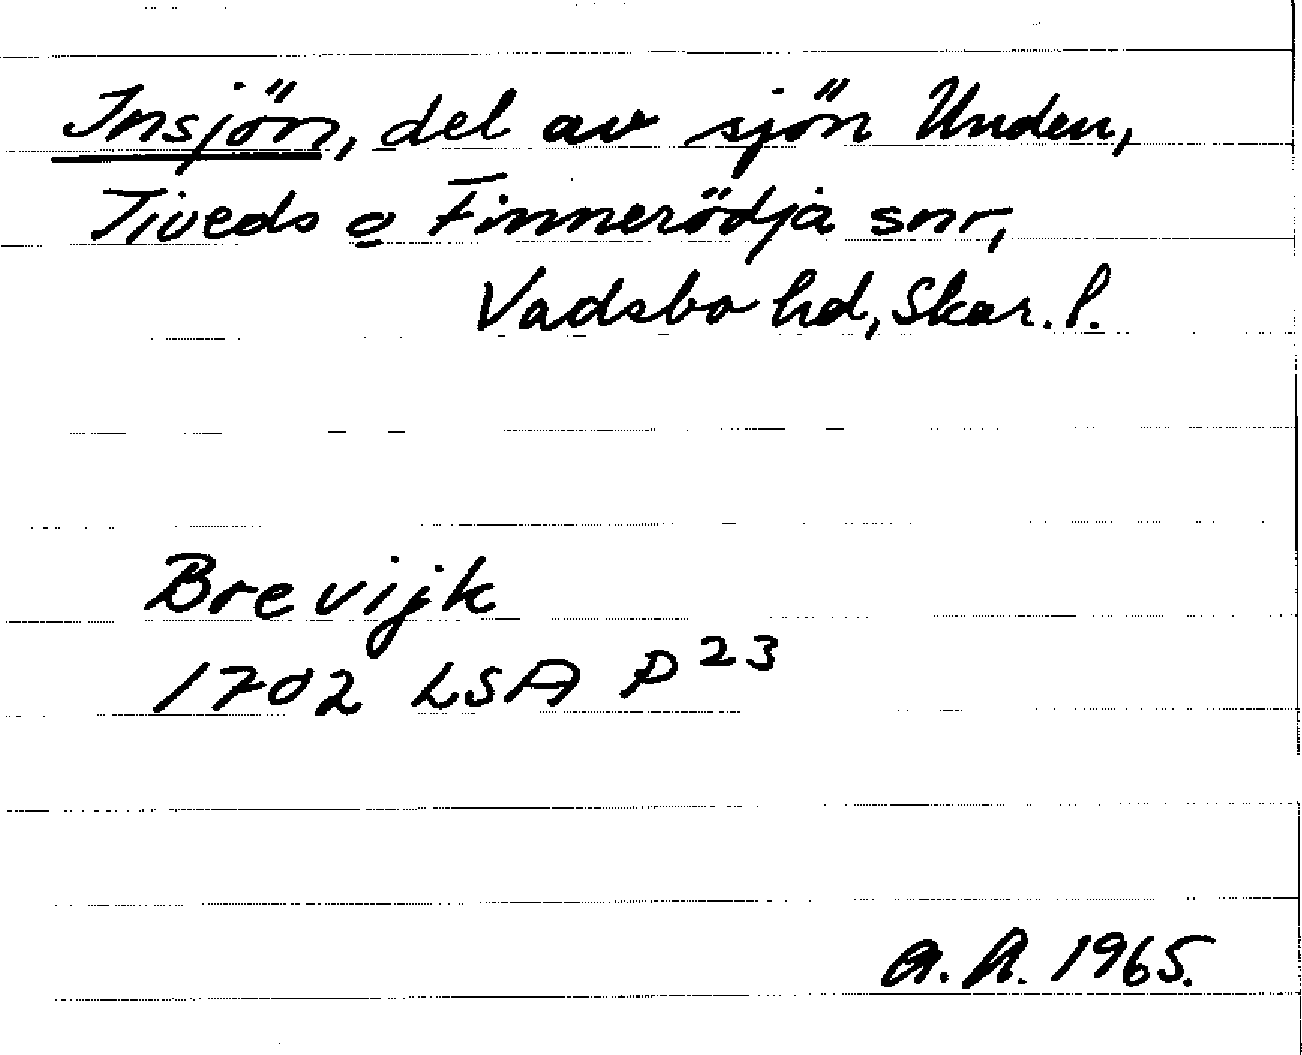 Insjön, del av sjön Unden,
Tiveds o Finnerödja snr,
Vadsbo hd, Skar. l.
Brevijk
1702 LSA P23
A. A. 1965.